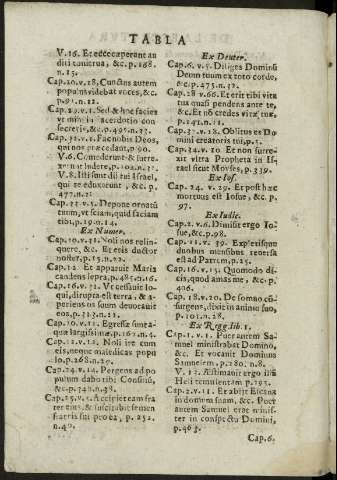 TABLA
V.16. Et ecce cæperunt au
diti tonitrua, &c. p.168.
n.15.
Cap.20.v.18. Cunctus autem
populus videbat voces, &c.
p.91.n.12.
Cap.29.v.1. Sed & hoc facies
ut mihi in sacerdotio con
secretis, &c.p.495.n.23.
Cap.32.v.1. Fac nobis Deos,
qui nos præcedant, p.90.
V.6. Comederunt & surre-
V.8. Isti sunt dii tui Israel,
qui te eduxerunt, & c. p.
477.n.2.
Cap.33.v.5. Depone ornatũ
tuum, ut sciam, quid faciam
tibi, p.19.n.14.
Ex Numer.
Cap.10.v.31. Noli nos relin-
quere, &c. Et eris ductor
noster, p.15.n.22.
Cap.12. Et apparuit Maria
candens lepra, p.485.n.16.
Cap.16.v.31. Ut cessavit lo-
qui, dirupta est terra, & a-
periens os suum devoravit
eos, p.313.n.21.
Cap.20.v.11. Egressæ sunt a-
quæ largissimæ, p.162.n.4.
Cap.22.v.12. Noli ire cum
eis, neque maledicas popu
lo, p.268.n.29.
Cap.24.v.14. Pergens ad po
pulum dabo tibi Consiliũ,
&c.p.349.n.38.
Cap.25.v.5. Accipiet eam fra
ter eius, & suscitabit semen
fratris sui p. 252.
n.40.
Ex Deuter.
Cap.6. v.5. Diliges Dominũ
Deum tuum ex toto corde,
&c.p.475.n.32.
Cap.28 v.66. Et erit tibi vita
tua quasi pendens ante te,
&c. Et nõ credes vitæ tuæ,
p.141.n.11.
Cap.32.v.18. Oblitus es Do
mini creatoris tui, p.5.
Cap.34.v.10. Et non surre-
xit vltra Propheta in Is-
rael sicut Moyses, p.339.
Ex Ios.
Cap.24. v.29. Et post hæc
mortuus est Iosue, &c, p.
97.
Ex Iudic.
Cap.2.v.6. Dimisit ergo Io-
sue, &c.p.98.
Cap.11. v. 39. Expletisque
duobus mensibus reversa
est ad Patrem, p.25.
Cap.16.v.15. Quomodo di-
cis, quod amas me, &c. p.
406.
Cap.18.v.20. De somno cõ-
surgens, dixit in animo suo,
p.101.n.28.
Ex Regg. lib. 1.
Cap.1.v.1. Puer autem Sa-
muel ministrabat Domino,
&c. Et vocavit Dominus
Samuelem, p.180. n.8.
V.12. Æstimavit ergo illã
Heli temulentam p.193.
Cap.2.v.11. Et abijt Elcana
in domum suam, &c. Puer
autem Samuel erat minis-
ter in conspectu Domini,
p.463.
Cap.6.